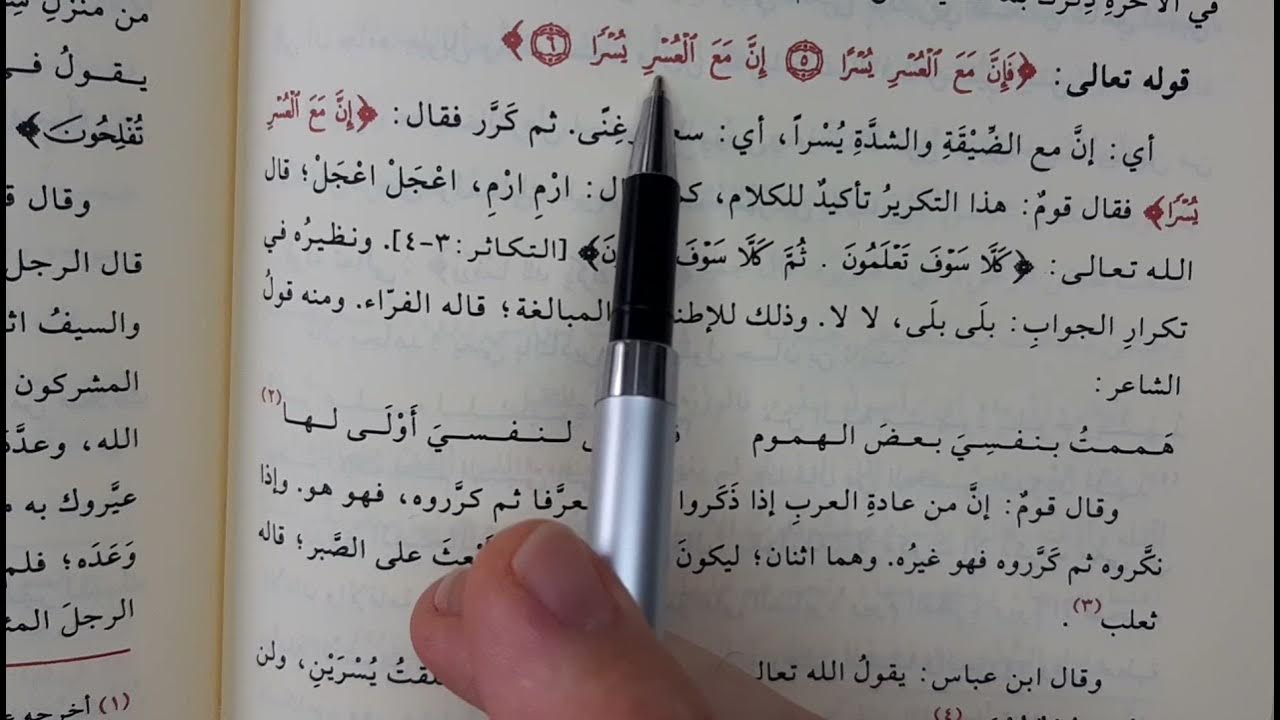 قوله تعالى: ﴿فَإِنَّ مَعَ ٱلْعُسْرِ يُسْرًا ۝٥ إِنَّ مَعَ ٱلْعُسْرِ يُسْرًا ۝٦﴾
أي: إنَّ مع الضِّيْقَةِ والشدَّةِ يُسْراً، أي: غِنًى. ثم كَرَّر فقال: ﴿إِنَّ مَعَ ٱلْعُسْرِ
يُسْرًا﴾ فقال قومٌ: هذا التكريرُ تأكيدٌ للكلام، ارْمِ ارْمِ، اعْجَلْ اعْجَلْ؛ قال
الله تعالى: ﴿كَلَّا سَوْفَ تَعْلَمُونَ . ثُمَّ كَلَّا سَوْفَ﴾ [التكاثر: ٣-٤]. ونظيرُه في
تكرارِ الجوابِ: بلَى بلَى، لا لا. وذلك المبالغة؛ قاله الفرّاء. ومنه قولُ
الشاعر:
هَممتُ بنفسِيَ بعضَ الهموم لنفسيَ أَوْلَى لها(٢)
وقال قومٌ: إنَّ من عادةِ العربِ إذا ذَكَروا ثم كرَّروه، فهو هو. وإذا
نكَّروه ثم كَرَّروه فهو غيرُه. وهما اثنان؛ ليكونَ على الصَّبر؛ قاله
ثعلب(٣).
وقال ابن عباس: يقولُ الله يُسْرَيْنِ، ولن
(٤)
من منزلِ
يقولُ
تُفْلِحُونَ﴾
وقال
قال الرجل
والسيفُ
المشركون
الله،
عيَّروك به
وَعَدَه؛
الرجلَ
(١) أخرجه